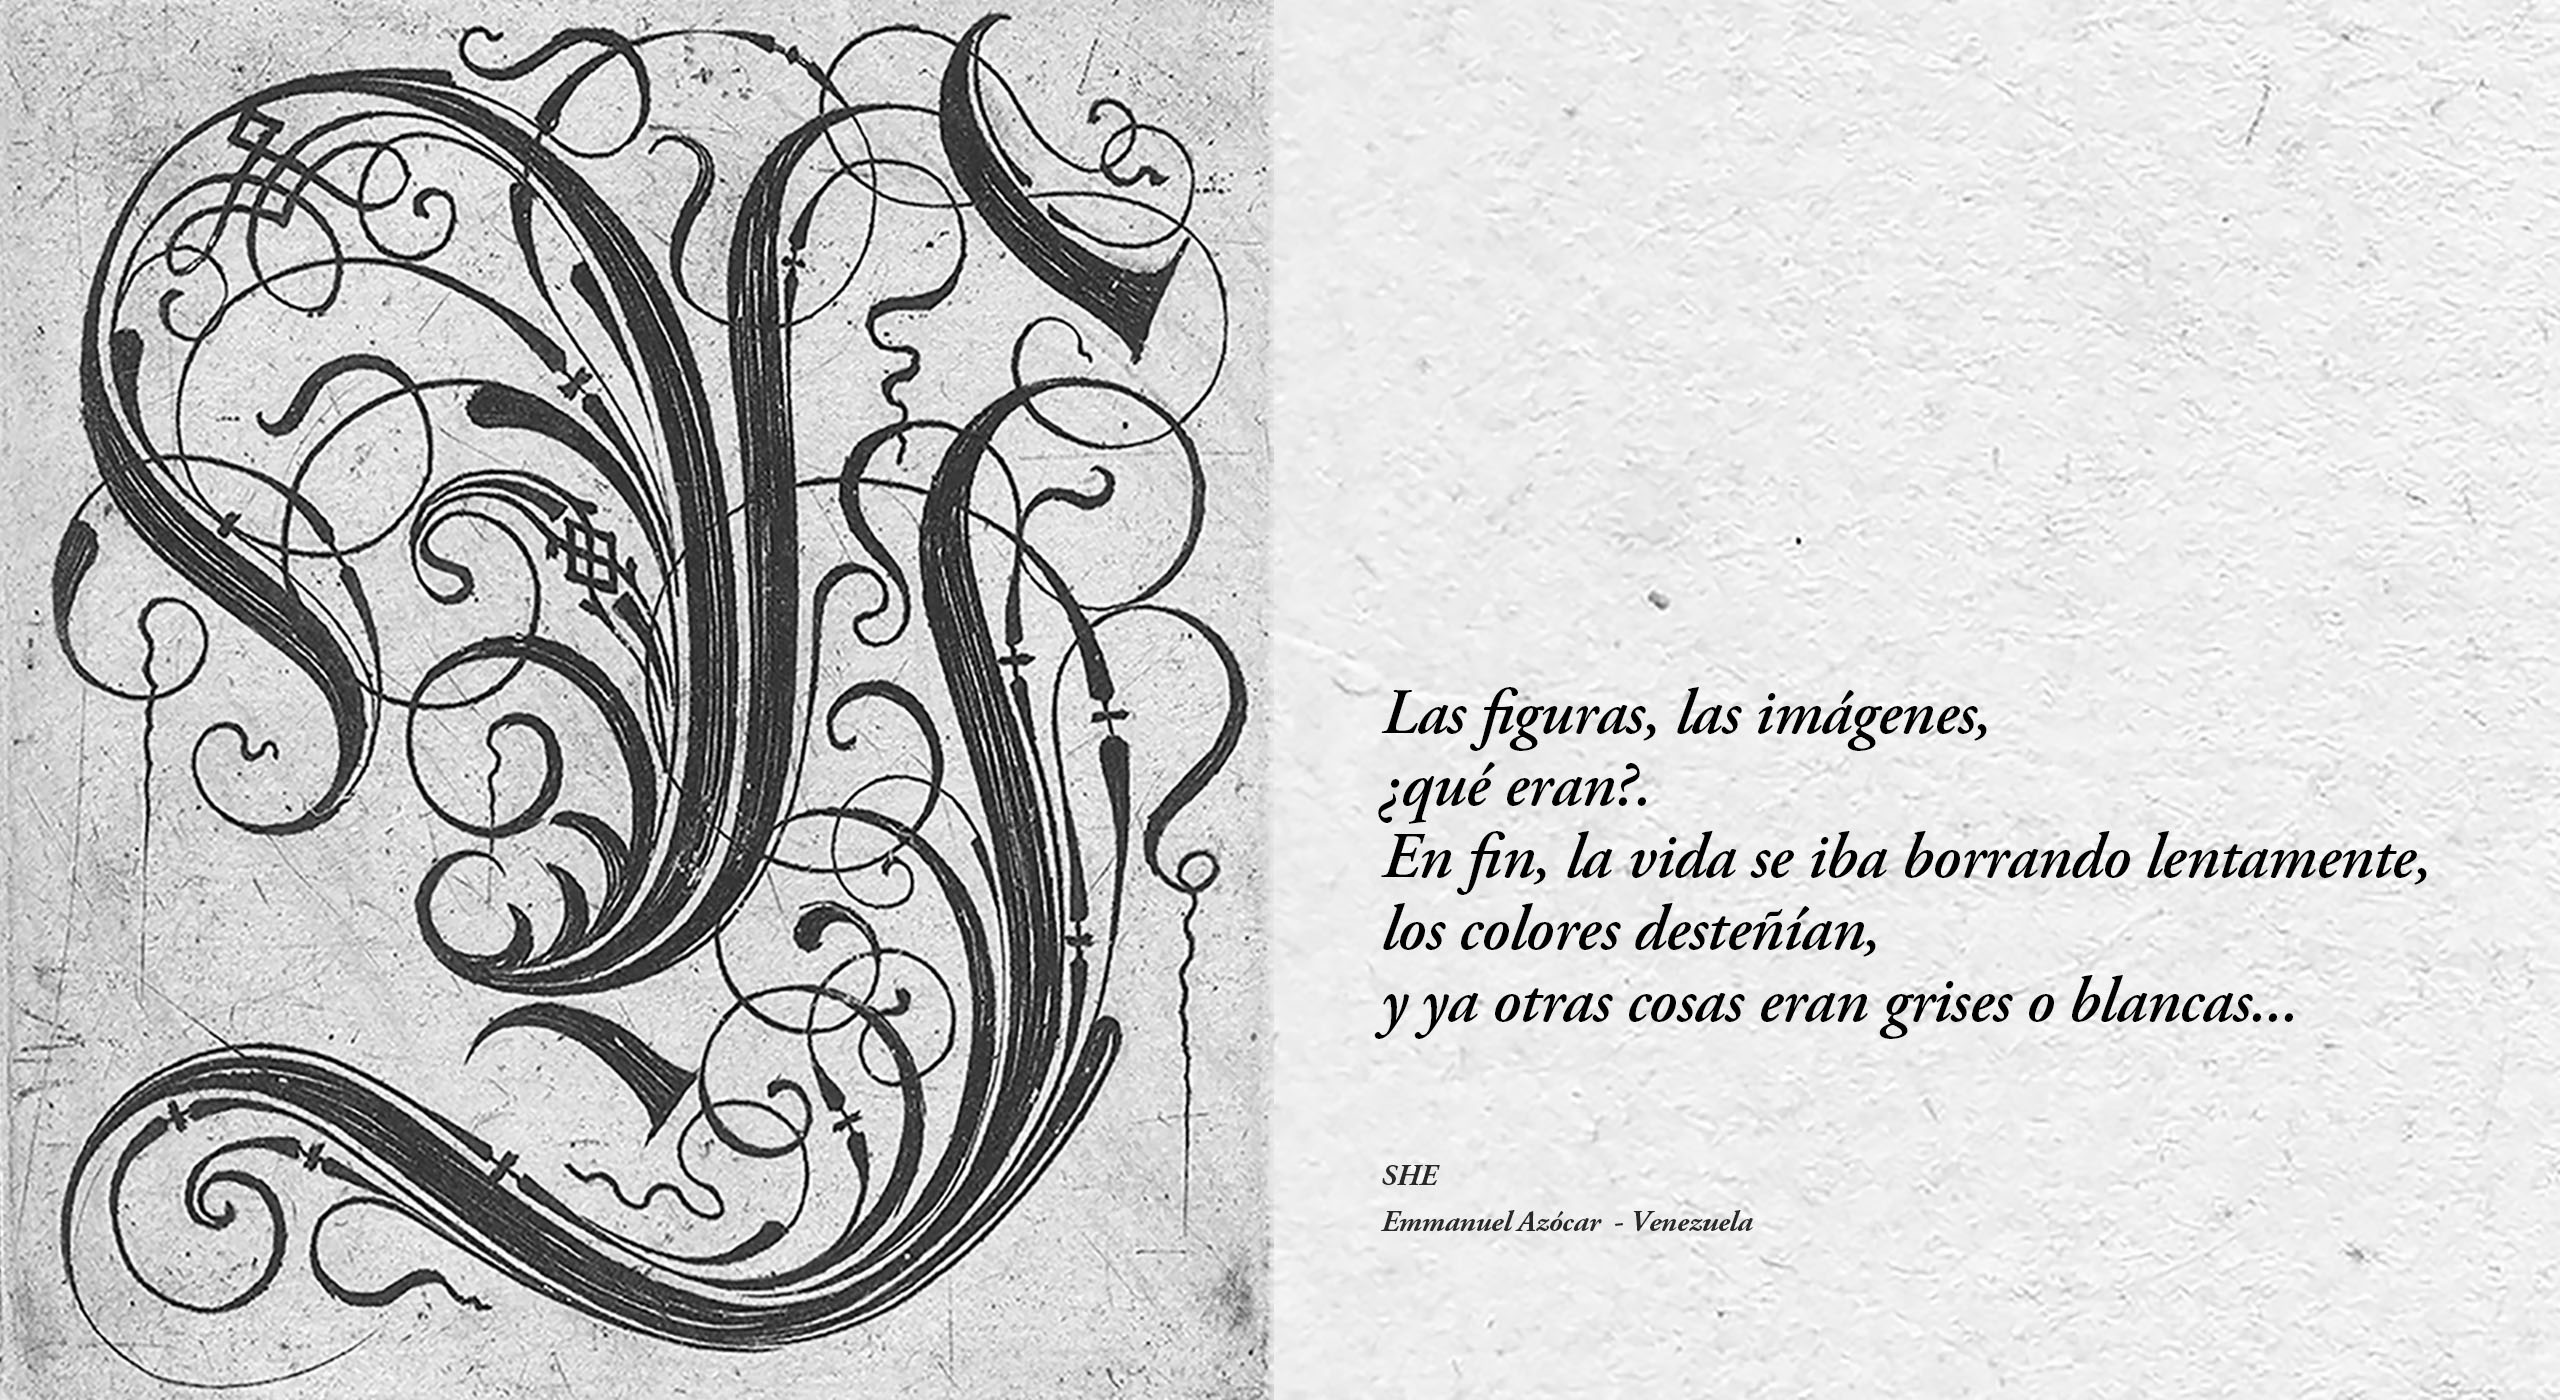 Las figuras, las imágenes,
¿qué eran?.
En fin, la vida se iba borrando lentamente,
los colores desteñían,
y ya otras cosas eran grises o blancas...
SHE
Emmanuel Azócar - Venezuela